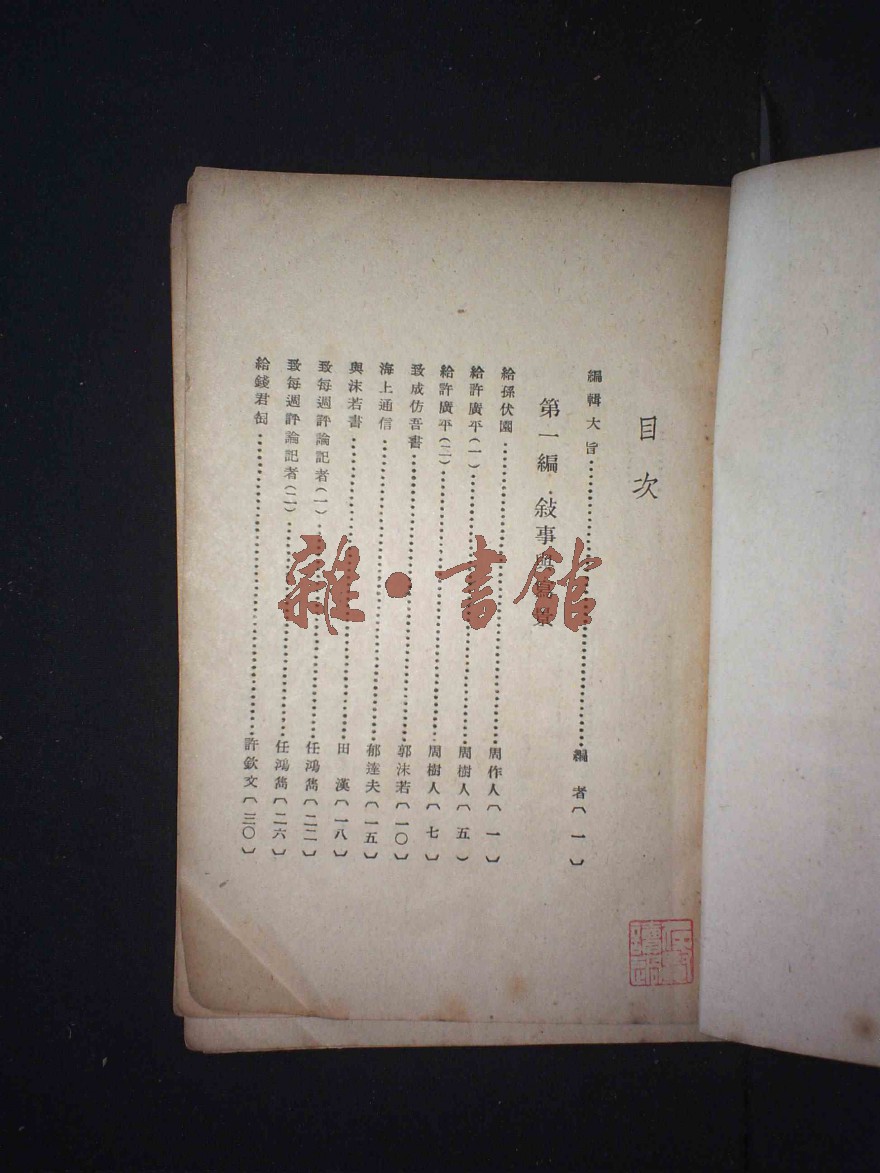 目次
編輯大旨……編者(一)
第一編 敍事與寫景
給孫伏園……周作人(一)
給許廣平(一)……周樹人(五)
給許廣平(二)……周樹人(七)
致成仿吾書……郭沫若(一〇)
海上通信……郁達夫(一五)
與沫若書……田漢(一八)
致每週評論記者(一)……任鴻雋(二二)
致每週評論記者(二)……任鴻雋(二六)
給錢君匋……許欽文(三〇)
雜·書館